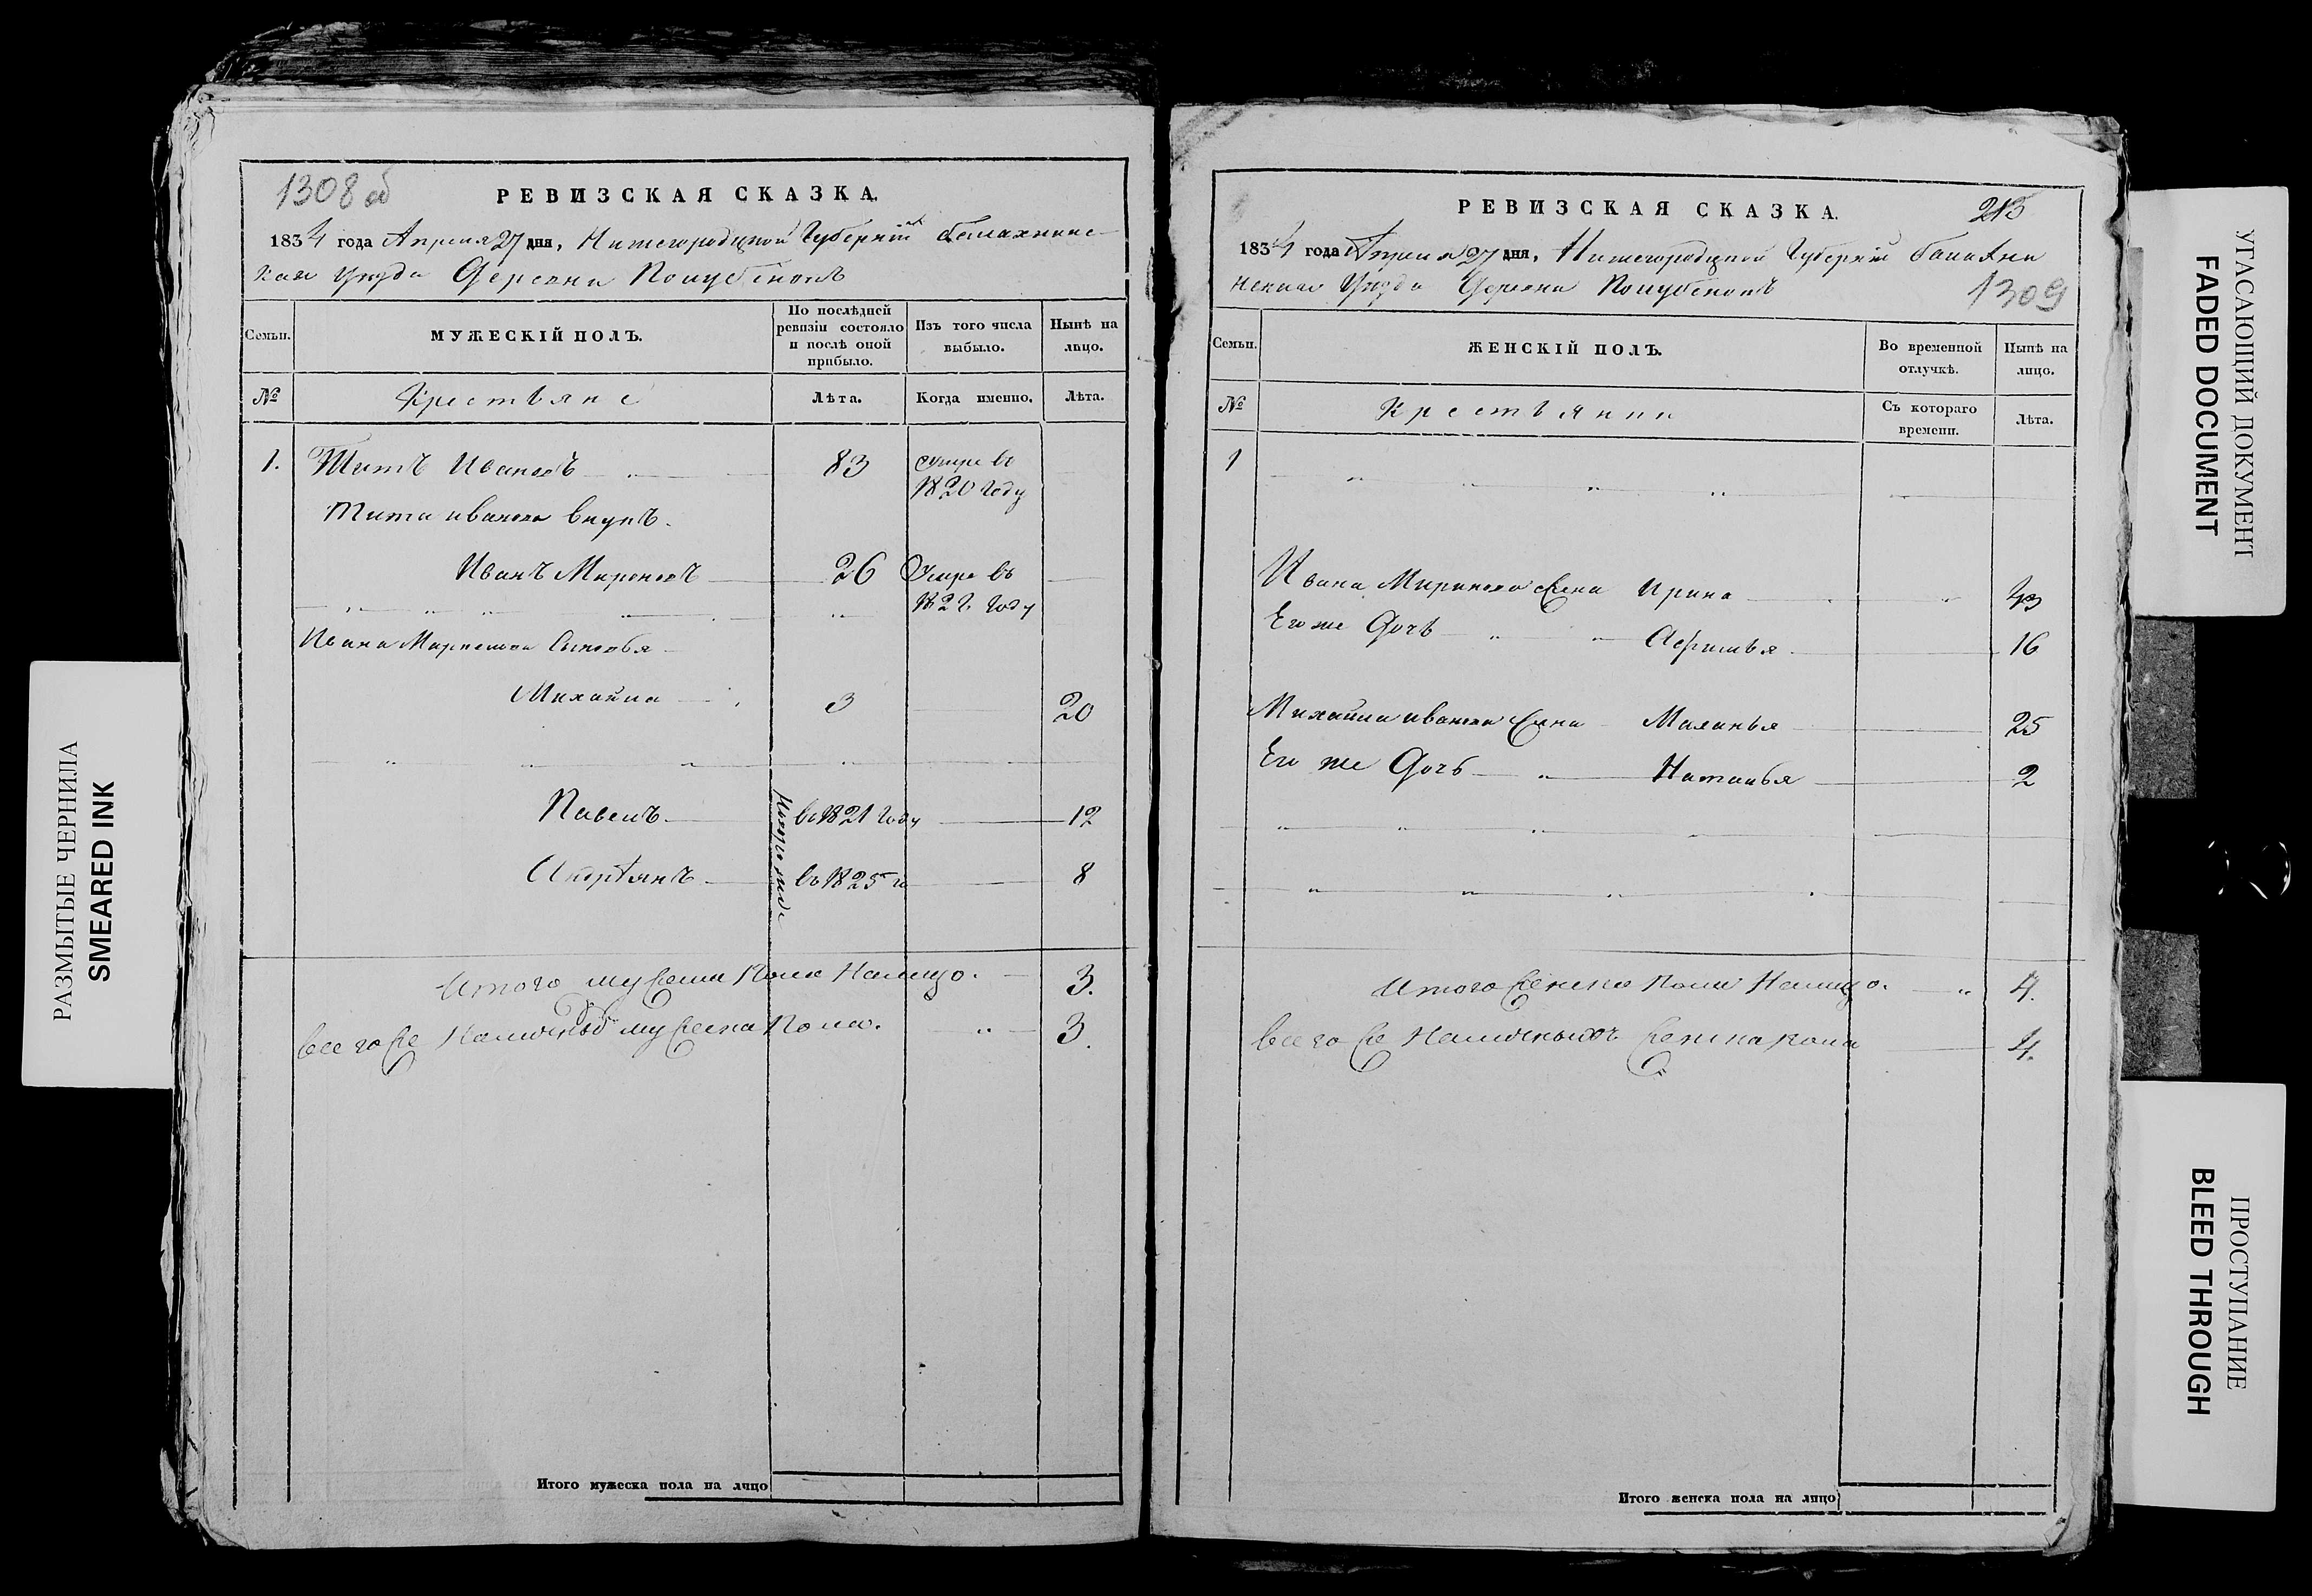 РАЗМЫТЫЕ ЧЕРНИЛА
SMEARED INK
1308 об
РЕВИЗСКАЯ СКАЗКА.
1834 года Апреля 27 дня, Нижегородцкой Губернии Балахнинс-
кая уезда Деревни
Семьи.
МУЖЕСКІЙ ПОЛЪ.
По послѣдней ревизіи состояло и послѣ оной прибыло.
Изъ того числа выбыло.
Нынѣ на лицо.
№
Крестьяне
Лѣта.
Когда именно.
Лѣта.
1. Титъ Ивановъ 83 умре въ
1820 году
Тита иванова внукъ.
Иванъ Мироновъ 26 Умре въ
году
Ивана Миронова Сыновья
Михайла 3 20
Павелъ во 1821 году 12
въ 1825 го 8
Итого мужеска Пола Налицо. 3.
всегоже Наличных мужеска Пола. 3.
Итого мужеска пола на лицо
РЕВИЗСКАЯ СКАЗКА.
215
1834 года Апреля 27 дня, Нижегородцкой Губернии Балахни
нская уезда Деревни
1309
Семьи.
ЖЕНСКІЙ ПОЛЪ.
Во временной отлучкѣ.
Нынѣ на лицо.
№
Крестьянки
Съ котораго времени.
Лѣта.
1
Ивана Миронова Жена Ирина 43
Его же Дочь Афимья 16
Михайла иванова Жена Маланья 25
Его же Дочь Наталья 2
Итого женска Пола Налицо. 4.
всегоже Наличныхъ женска пола 4.
Итого женска пола на лицо
УГАСАЮЩИЙ ДОКУМЕНТ
FADED DOCUMENT
ПРОСТУПАНИЕ
BLEED THROUGH